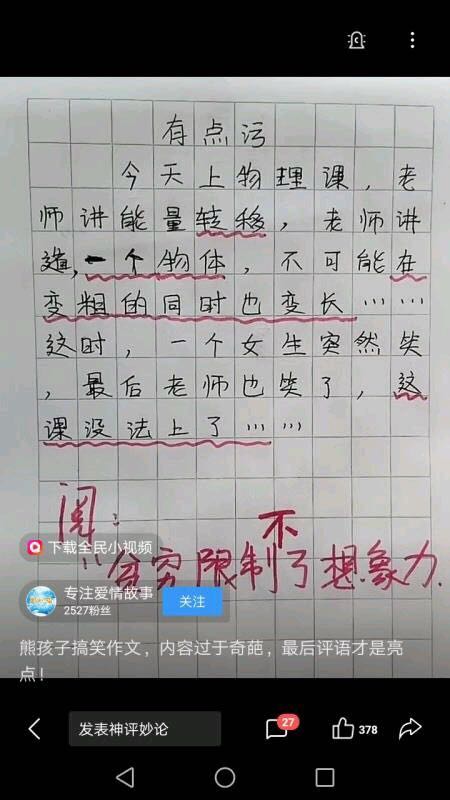 有点污
今天上物理课，老
师讲能量转移，老师讲
道，一个物体，不可能在
变粗的同时也变长……
这时，一个女生突然笑
，最后老师也笑了，这
课没法上了……
阅：
不
贫穷限制了想象力.
下载全民小视频
专注爱情故事
2527粉丝
关注
熊孩子搞笑作文，内容过于奇葩，最后评语才是亮
点！
发表神评妙论
27
378